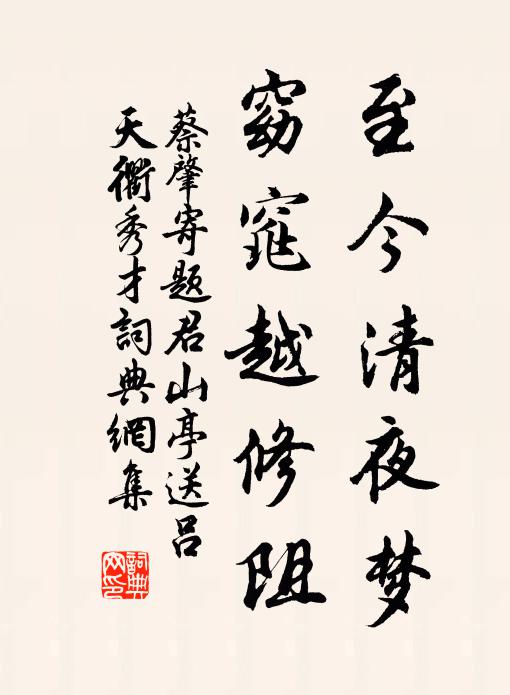 至今清夜梦
窈窕越修阻
蔡肇寄题君山亭送吕
天衢秀才詞典網集
詞典
网印